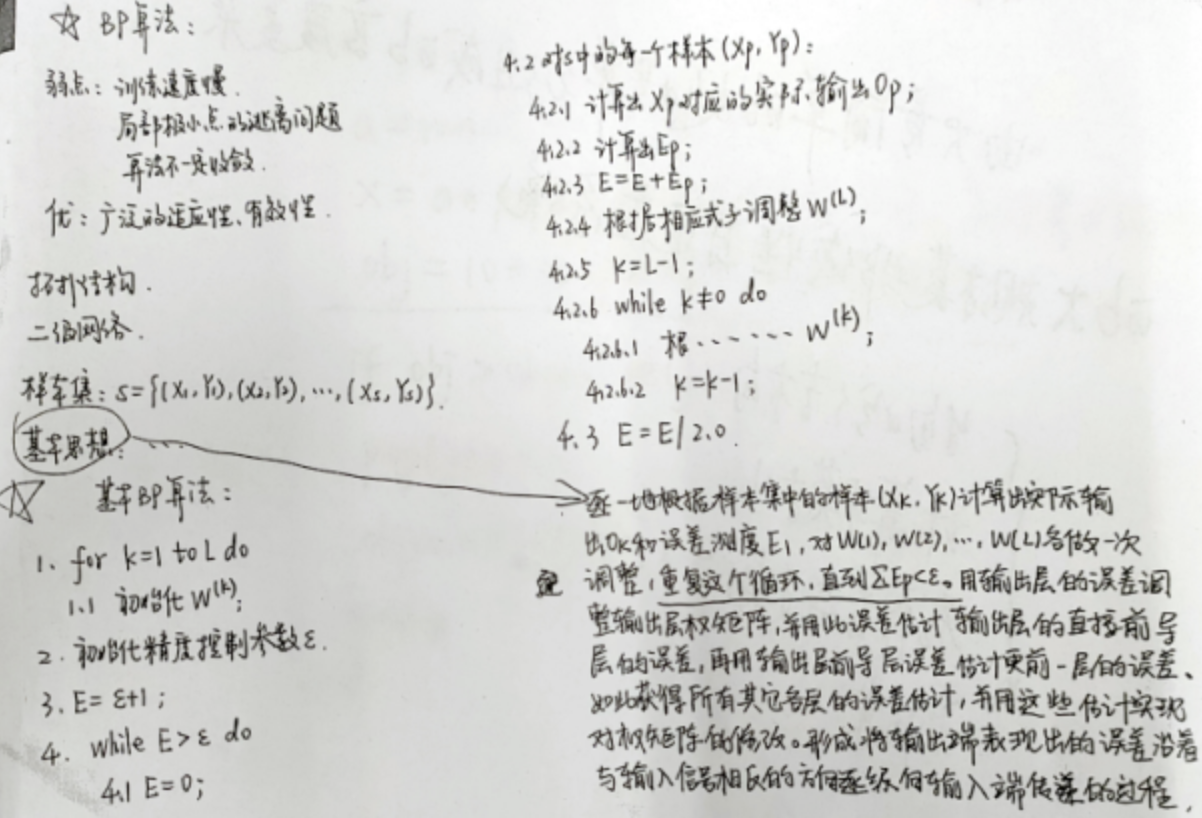 ☆ BP算法：
弱点：训练速度慢.
局部极小点的逃离问题
算法不一定收敛.
优：广泛的适应性、有效性.
拓扑结构.
二级网络.
样本集：S={(X1,Y1),(X2,Y2),…,(Xs,Ys)}.
基本思想：……
☆ 基本BP算法：
1. for k=1 to L do
1.1 初始化W(k);
2. 初始化精度控制参数ε.
3. E=ε+1;
4. while E>ε do
4.1 E=0;
4.2 对S中的每一个样本(Xp,Yp)：
4.2.1 计算出Xp对应的实际输出Op;
4.2.2 计算出Ep;
4.2.3 E=E+Ep;
4.2.4 根据相应式子调整W(L);
4.2.5 k=L-1;
4.2.6 while k≠0 do
4.2.6.1 根…… W(k);
4.2.6.2 k=k-1;
4.3 E=E/2.0.
逐一地根据样本集中的样本(Xk,Yk)计算出实际输
出Ok和误差测度E1,对W(1),W(2),…,W(L)各做一次
调整,重复这个循环,直到∑Ep<ε。用输出层的误差调
整输出层权矩阵,并用此误差估计输出层的直接前导
层的误差,再用输出层前导层误差估计更前一层的误差、
如此获得所有其它各层的误差估计,并用这些估计实现
对权矩阵的修改。形成将输出端表现出的误差沿着
与输入信号相反的方向逐级向输入端传递的过程.